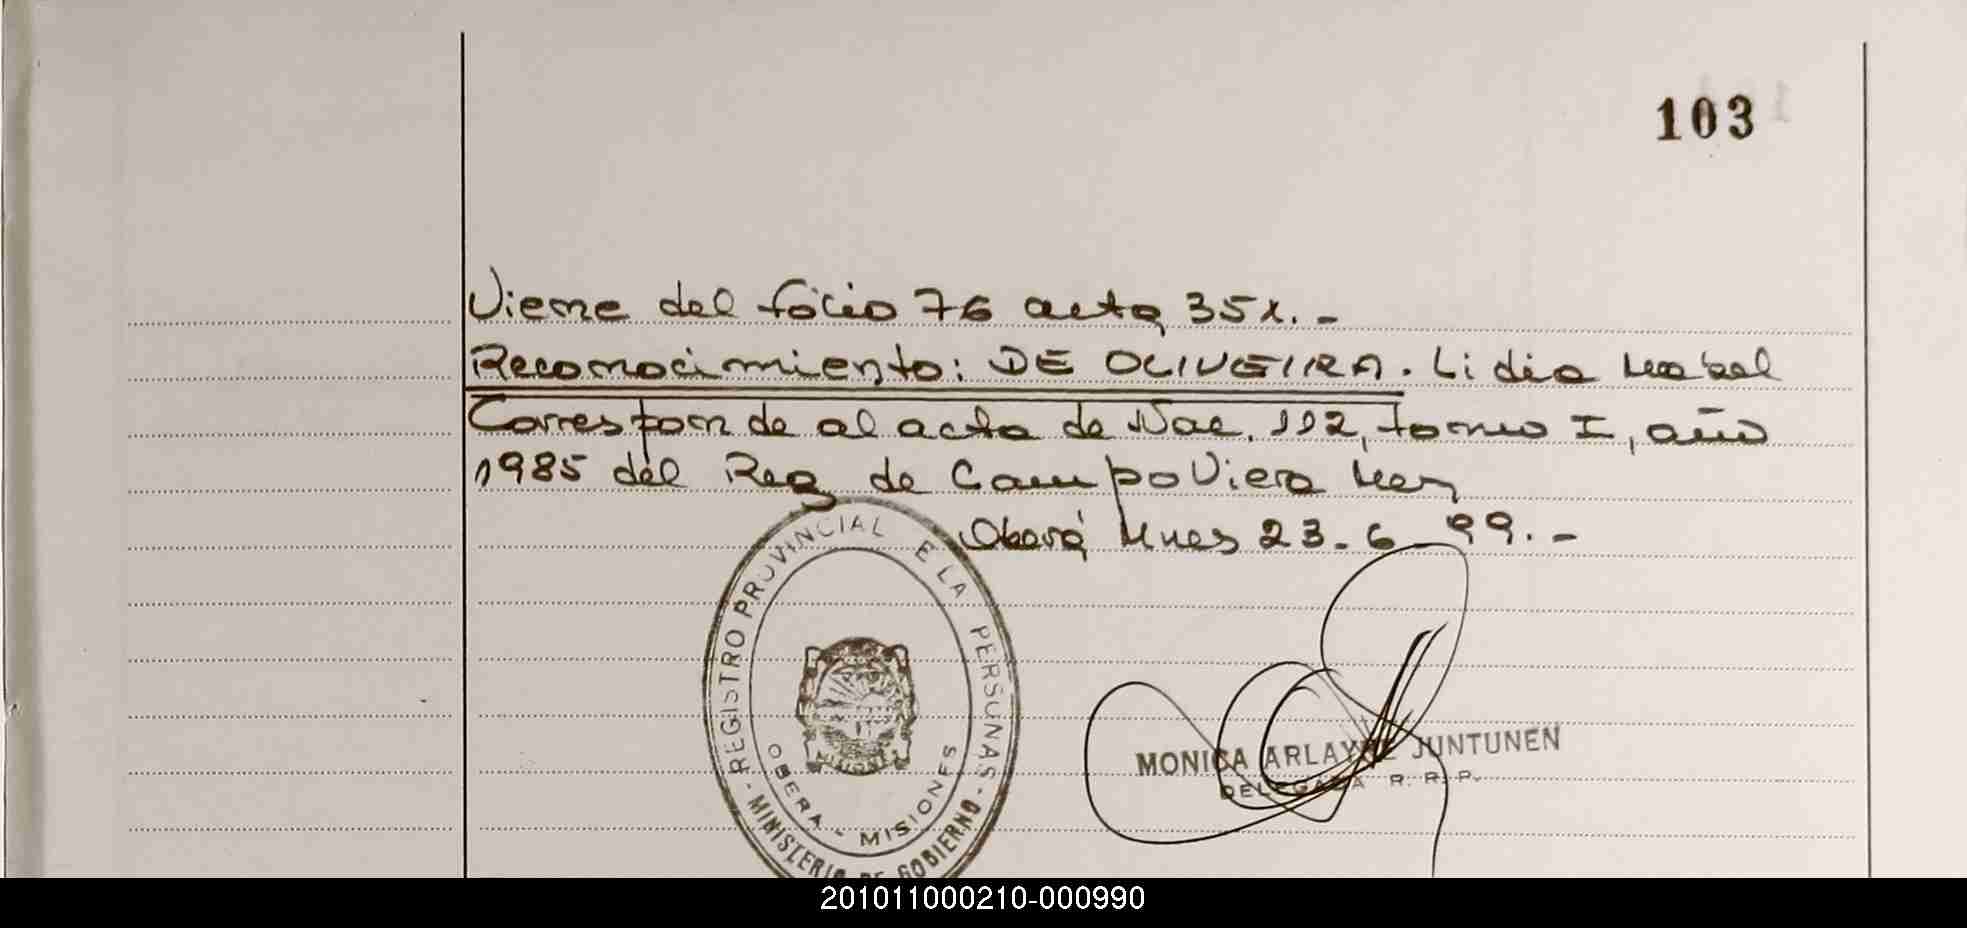 103
Viene del folio 76 acta 351.-
Reconocimiento: DE OLIVEIRA. Lidia Mabel
Corresponde al acta de Nac. 192, tomo I, año
1985 del Reg de Campo Viera
Oberá Mnes 23.6.99.-
REGISTRO PROVINCIAL E LA PERSONAS - MINISTERIO DE GOBIERNO -
OBERA - MISIONES
MISIONES
MONICA ARLAYNE JUNTUNEN
DELEGADA R. R. P.
201011000210-000990